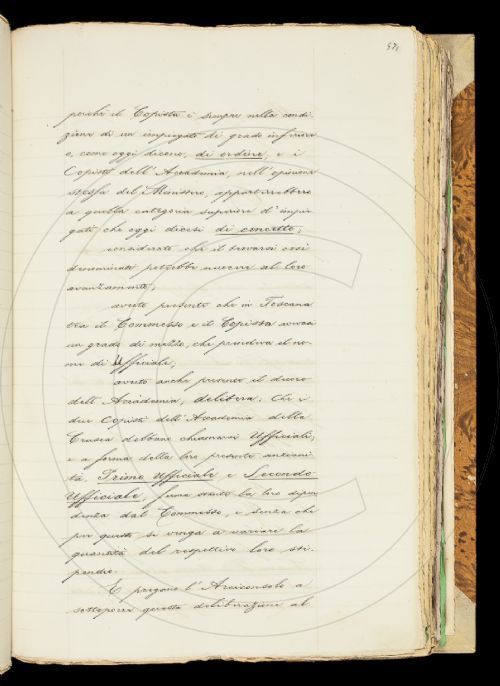 perchè il Copista è sempre nella condi-
zione di un impiegato di grado inferiore
o, come oggi dicono, di ordine, e i
Copisti dell'Accademia, nell'opinione
stessa del Ministero, appartirrebbero
a quella categoria superiore d'impie-
gati che oggi dicesi di concetto;
considerato che il trovarsi così
denominati potrebbe nuocere al loro
avanzamento;
avuto presente che in Toscana
tra il Commesso e il Copista aveva
un grado di mezzo, che prendeva il no-
me di Ufficiale;
avuto anche presente il decoro
dell'Accademia; delibera: Che i
due Copisti dell'Accademia della
Crusca debbano chiamarsi Ufficiali,
e a forma della loro presente anziani-
tà, Primo Ufficiale e Secondo
Ufficiale, fermo stante la loro dipen-
denza dal Commesso, e senza che
per questo si venga a variare la
quantità del respettivo loro sti-
pendio.
E pregano l'Arciconsolo a
sottoporre questa deliberazione al